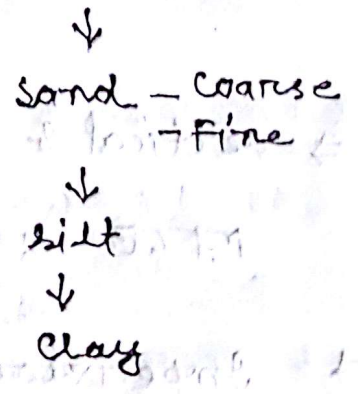 ↓
Sand - Coarse
- Fine
↓
silt
↓
Clay